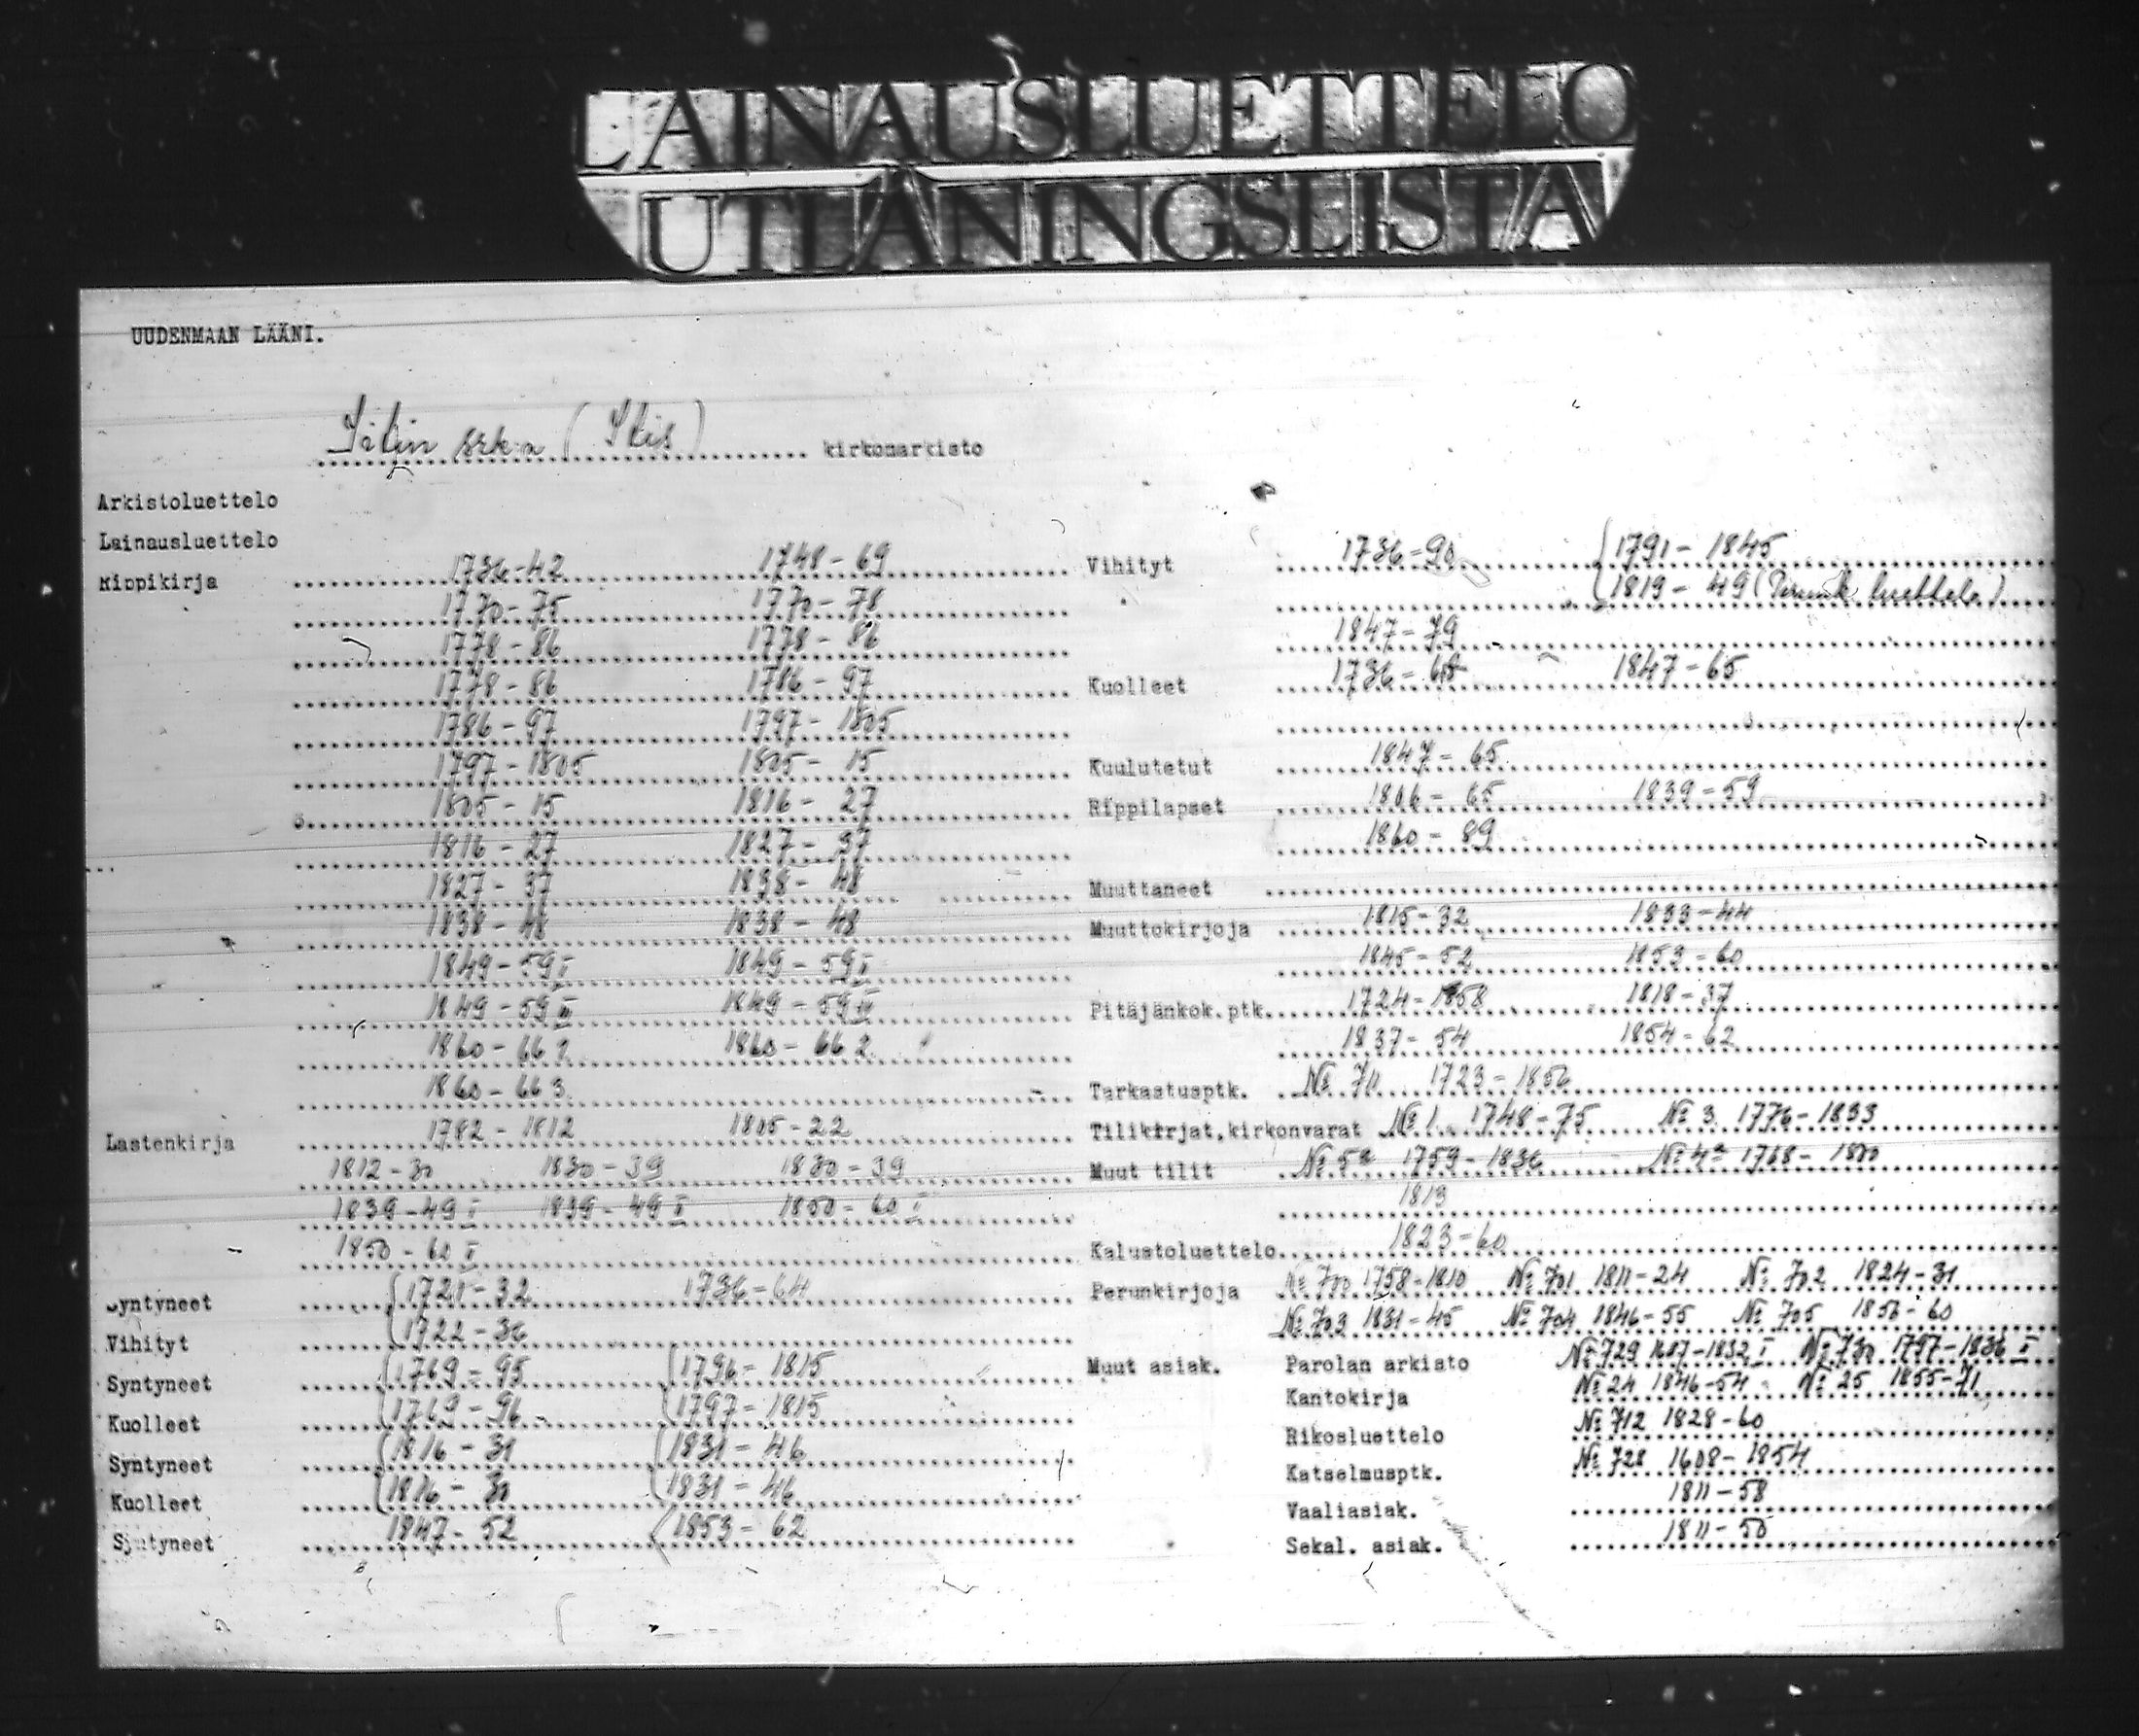 LAINAUSLUETTELO
UTLÅNINGSLISTA
UUDENMAAN LÄÄNI.
Iitin srk:n (Itis) kirkonarkisto
Arkistoluettelo
Lainausluettelo
Rippikirja 1736-42 1748-69
1770-75 1770-78
1778-86 1778-86
1778-86 1786-97
1786-97 1797-1805
1797-1805 1805-15
1805-15 1816-27
1816-27 1827-37
1827-37 1838-48
1838-48 1838-48
1849-59 I 1849-59 I
1849-59 II 1849-59
1860-66 1860-66 2
1860-66 3
Lastenkirja 1782-1812 1805-22
1812-30 1830-39 1830-39
1839-49 I 1839-49 I 1850-60 I
1850-60 I
Syntyneet 1721-32 1736-64
Vihityt 1722-36
Syntyneet 1769-95 1796-1815
Kuolleet 1769-96 1797-1815
Syntyneet 1816-31 1831-46
Kuolleet 1816-30 1831-46
Syntyneet 1847-52 1853-62
Vihityt 1736-90 1791-1845
1819-49 ( luettelo)
1847-79
Kuolleet 1736-68 1847-65
Kuulutetut 1847-65
Rippilapset 1806-65 1839-59
1860-89
Muuttaneet
Muuttokirjoja 1815-32 1833-44
1845-52 1853-60
Pitäjänkok.ptk. 1724-1858 1818-37
1837-54 1854-62
Tarkastusptk. № 711 1723-1856
Tilikirjat,kirkonvarat № 1 1748-75 № 3 1776-1833
Muut tilit № 5a 1759-1836 № 4a 1768-1800
1813
Kalustoluettelo 1823-60
Perunkirjoja № 700 1758-1810 № 701 1811-24 № 702 1824-31
№ 703 1831-45 № 704 1846-55 № 705 1856-60
Muut asiak. Parolan arkisto № 729 1687-1832 I № 730 1797-1836 II
Kantokirja № 24 1846-54 № 25 1855-71
Rikosluettelo № 712 1828-60
Katselmusptk. № 728 1608-1854
Vaaliasiak. 1811-58
Sekal. asiak. 1811-50